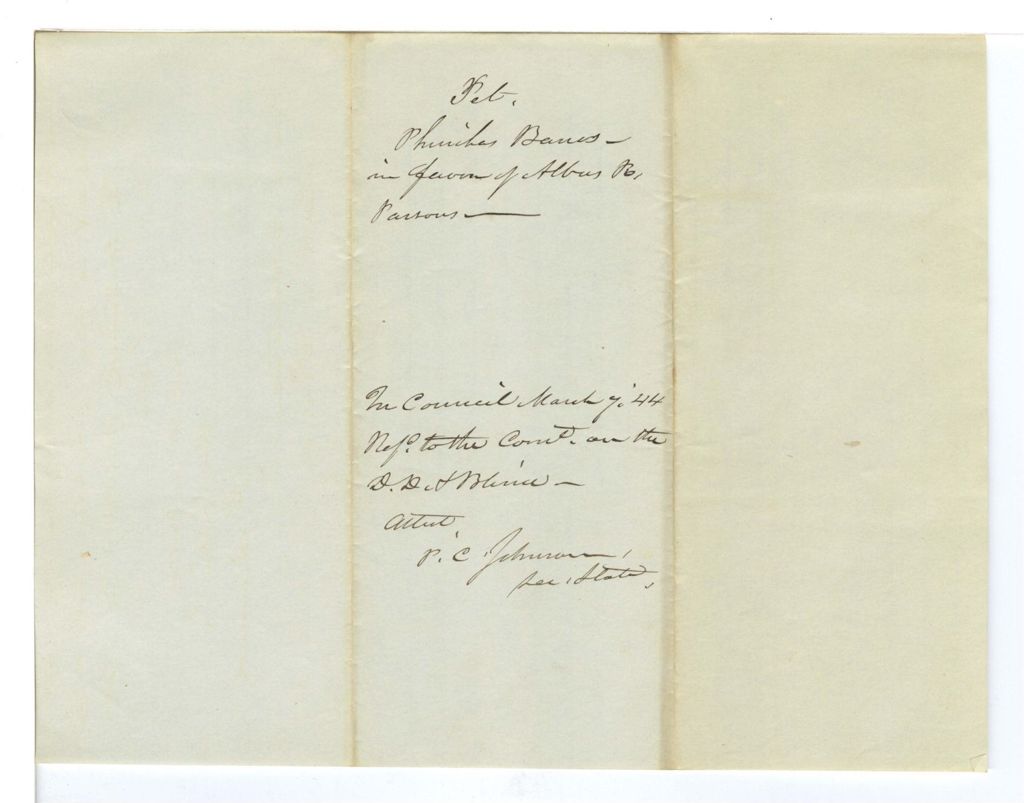 Pet.
Phinihas Barnes -
in favor of Albus R.
Parsons
In Council March 7, '44
Refd. to the Comt. on the
D. D. & Blind -
Attest,
P. C. Johnson,
Sec. State,